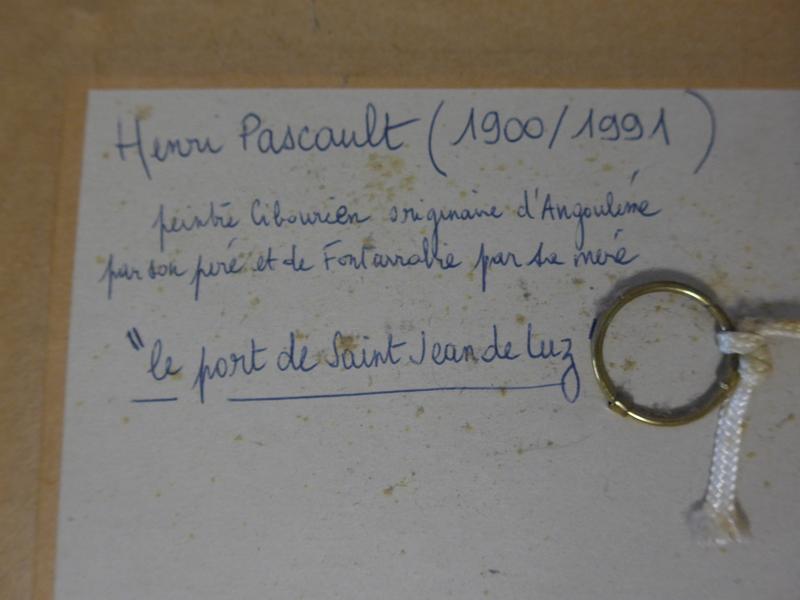 Henri Pascault (1900/1991)
peintre Cibourien originaire d'Angoulème
par son père et de Fontarrabie par sa mère
"le port de Saint Jean de Luz"